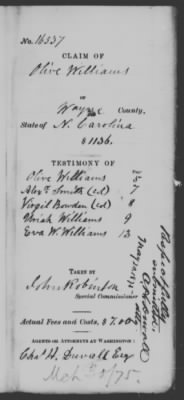 No. 16537
CLAIM OF
Olive Williams
OF
Wayne County,
State of N. Carolina
$1136.
TESTIMONY OF
Olive Williams 2
Alexr. Smith (cd) 7
Virgil Bowden (cd) 8
Uriah Williams 9
Eva W. Williams 13
TAKEN BY
John Robinson
Special Commissioner
Actual Fees and Costs, $7.00
AGENTS OR ATTORNEYS AT WASHINGTON:
Chas H. Duvall Esq
Mch 3 /75.